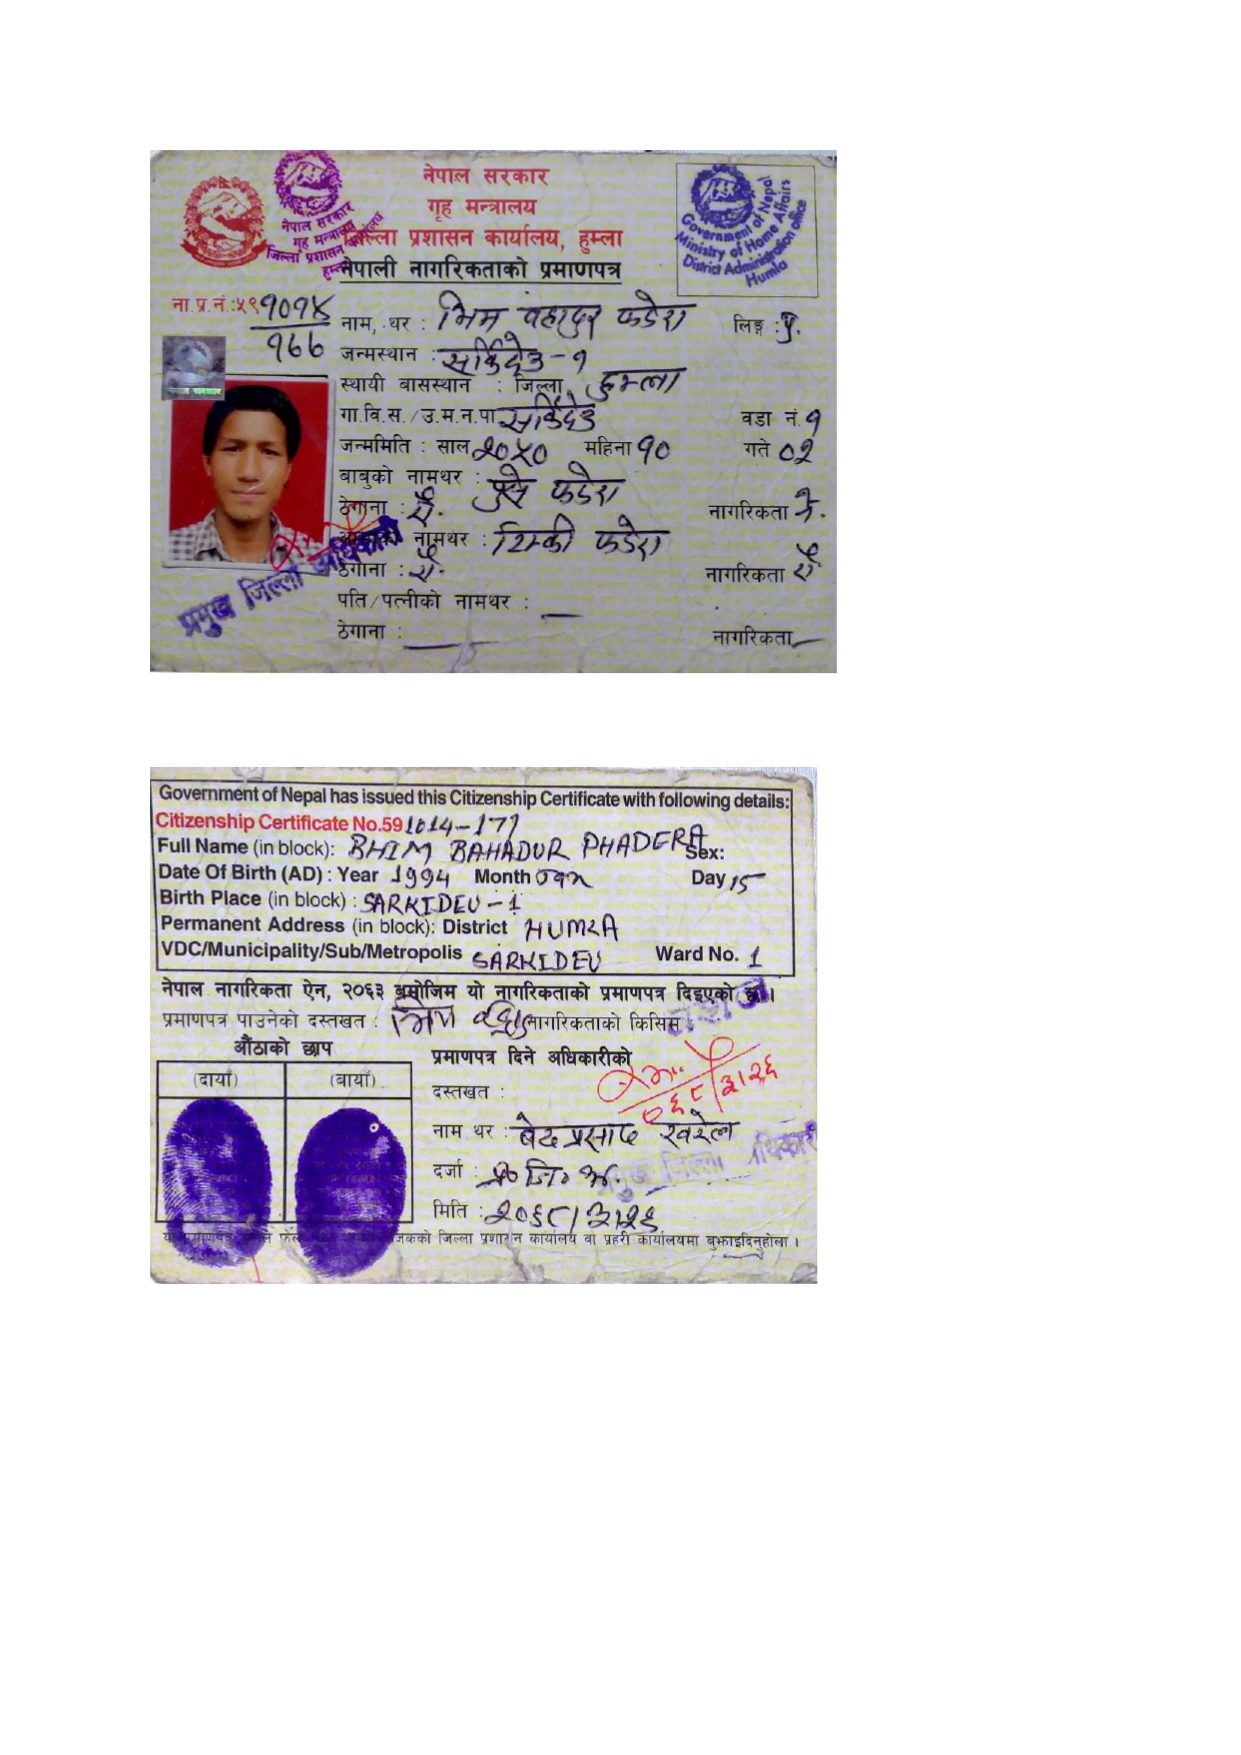 नेपाल सरकार
गृह मन्त्रालय
जिल्ला प्रशासन कार्यालय, हुम्ला
नेपाली नागरिकताको प्रमाणपत्र
नेपाल सरकार
गृह मन्त्रालय
जिल्ला प्रशासन कार्यालय
हुम्ला
Government of Nepal
Ministry of Home Affairs
District Administration office
Humla
ना.प्र.नं.:५९ १०१४
नाम, थर : भिम बहादुर फडेरा लिङ्ग : पु.
जन्मस्थान : सर्किदेउ-१
स्थायी बासस्थान : जिल्ला हुम्ला
गा.वि.स./उ.म.न.पा सर्किदेउ वडा नं. १
जन्ममिति : साल २०५० महिना १० गते ०२
बाबुको नामथर : फडेरा
ठेगाना : ऐ. नागरिकता
आमाको नामथर : फडेरा
ठेगाना : ऐ. नागरिकता ऐ
पति/पत्नीको नामथर : —
ठेगाना : — नागरिकता —
प्रमुख जिल्ला अधिकारी
Government of Nepal has issued this Citizenship Certificate with following details:
Citizenship Certificate No.59 1014-177
Full Name (in block): BHIM BAHADUR PHADERA Sex:
Date Of Birth (AD) : Year 1994 Month Jan Day 15
Birth Place (in block) : SARKIDEU-1
Permanent Address (in block): District HUMLA
VDC/Municipality/Sub/Metropolis SARKIDEU Ward No. 1
नेपाल नागरिकता ऐन, २०६३ बमोजिम यो नागरिकताको प्रमाणपत्र दिइएको छ।
प्रमाणपत्र पाउनेको दस्तखत : नागरिकताको किसिम
औंठाको छाप
(दायाँ) (बायाँ)
प्रमाणपत्र दिने अधिकारीको
दस्तखत :
नाम थर : बेद प्रसाद खरेल
दर्जा : प्र.जि.अ.
प्रमुख जिल्ला अधिकारी
मिति : २०६८।३।२६
जिल्ला प्रशासन कार्यालय वा प्रहरी कार्यालयमा बुझाइदिनुहोला ।